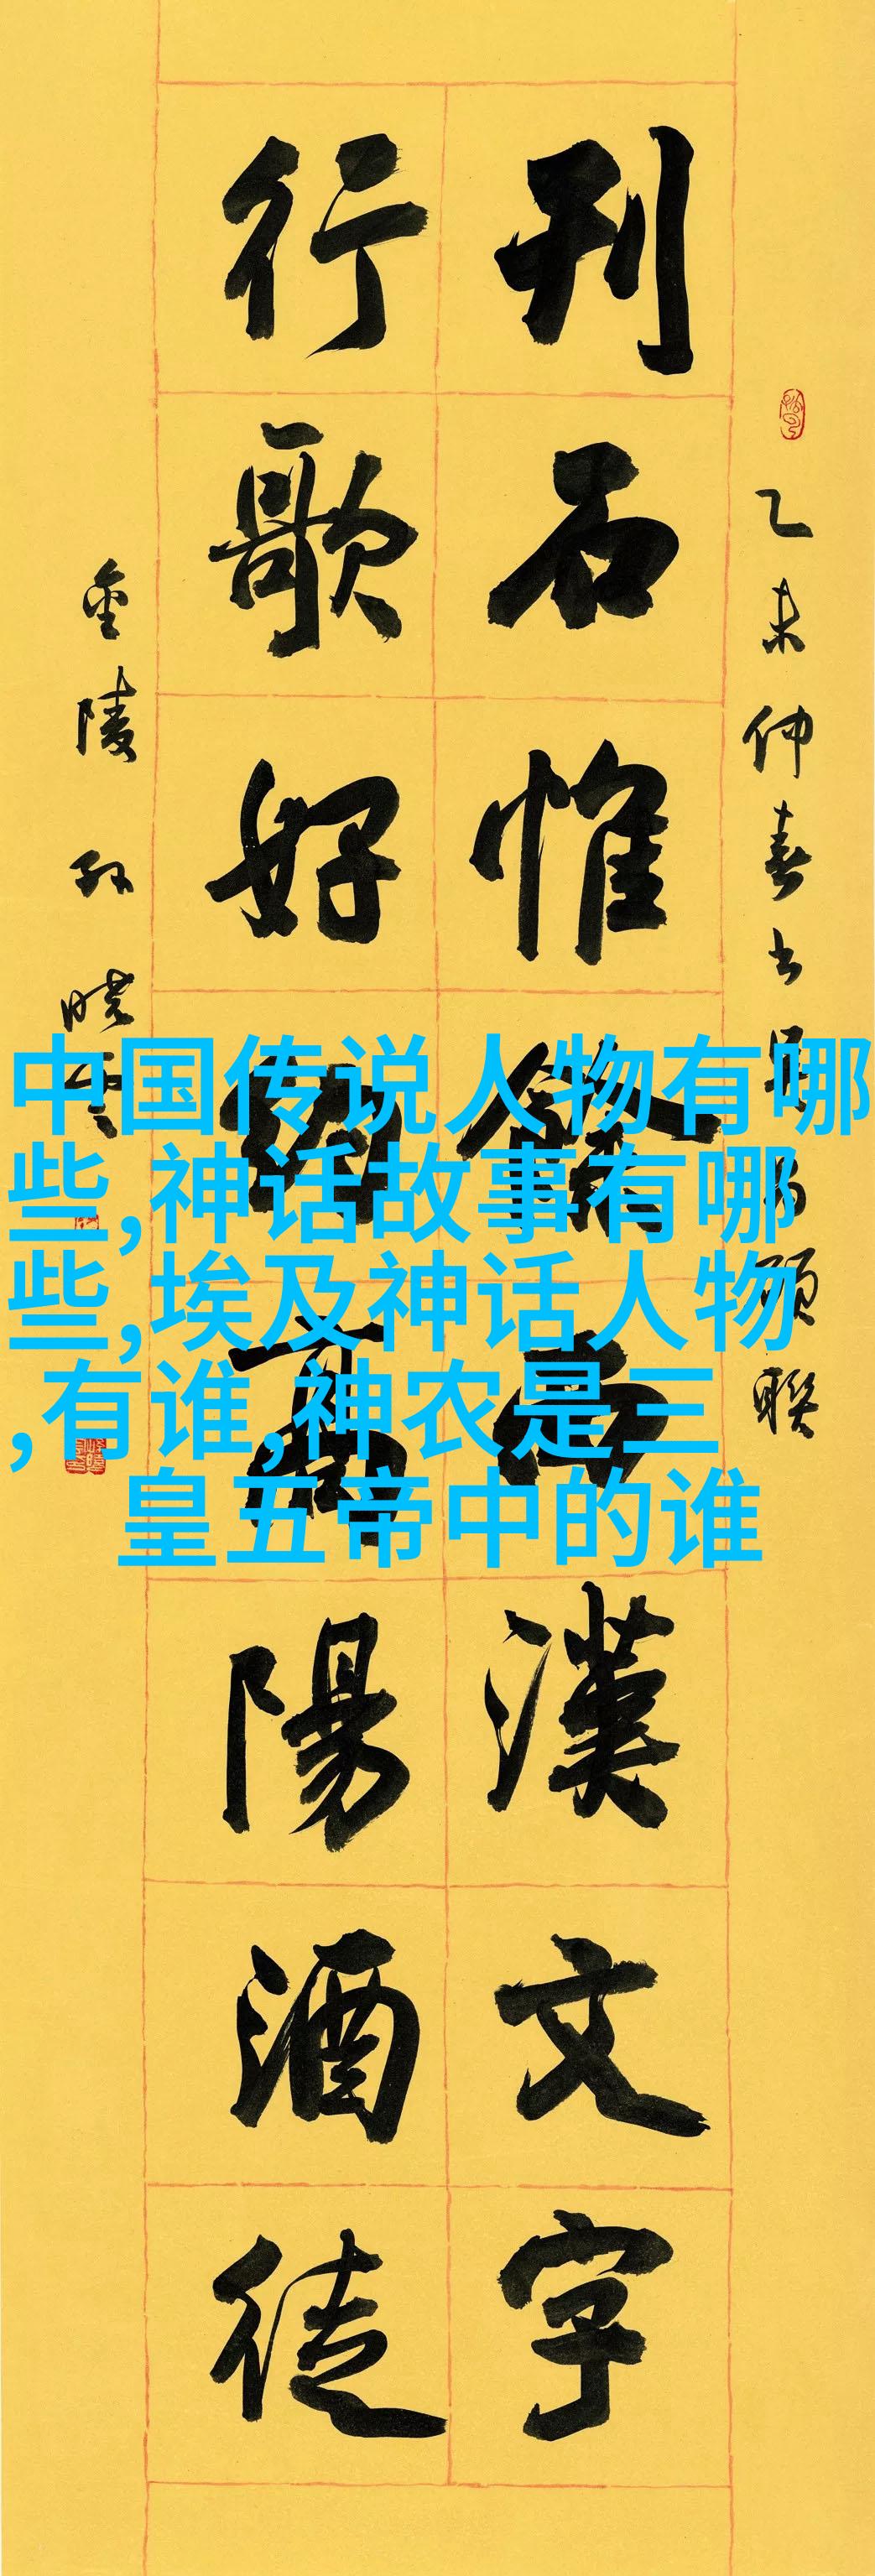 乙未仲春书
聯
刊石惟西漢文字
行歌好約高陽酒徒
金陵孙晓雲
中国传说人物有哪
些,神话故事有哪
些,埃及神话人物
,有谁,神农是三
皇五帝中的谁